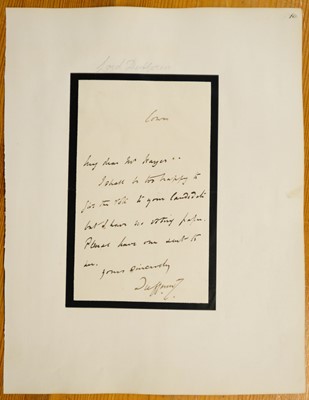 Lord Dufferin
Cowes
My dear Mr Hayes..
I shall be too happy to
give the vote to your Candidate
but I have no voting paper.
Please have one sent to
me.
Yours sincerely
Dufferin